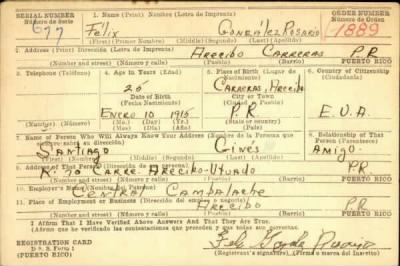 SERIAL NUMBER 1. Name (Print) Nombre (Letra de Imprenta) ORDER NUMBER
Número de Serie Número de Orden
677 Félix González Rosario 1889
(First) (Primer Nombre) (Middle) (Segundo) (Last) (Apellido)
2. Address (Print) Dirección (Letra de Imprenta)
Arecibo Carreras P.R.
(Number and street) (Número y calle) (Town) (Pueblo) PUERTO RICO
3. Telephone (Teléfono) 4. Age in Years (Edad) 5. Place of Birth (Lugar de Nacimiento) 6. Country of Citizenship (Ciudadanía)
Carreras, Arecibo
Date of Birth (Fecha Nacimiento) City or Town (Ciudad o Pueblo)
Enero 10 1915 P.R. E.U.A.
(Mo.) (Mes) (Day) (Día) (Yr.) (Año)
7. Name of Person Who Will Always Know Your Address (Nombre de la Persona que siempre sabrá su dirección) 8. Relationship of That Person (Parentesco)
Santiago Ginés Amigo
(First) (Primer Nombre) (Middle) (Segundo) (Last) (Apellido)
K. 70 Carre. Arecibo-Utuado P.R.
(Number and street) (Número y calle) (Town) (Pueblo) PUERTO RICO
10. Employer's Name (Nombre del Patrono)
Central Cambalache
11. Place of Employment or Business (Dirección del empleo o negocio)
Arecibo P.R.
(Number and street) (Número y calle) (Town) (Pueblo) PUERTO RICO
I Affirm That I Have Verified Above Answers And That They are True.
(Afirmo que he verificado las contestaciones que preceden y que son ciertas)
REGISTRATION CARD
D. S. S. Form 1
(Registrant's signature) (Firma o marca del inscrito)